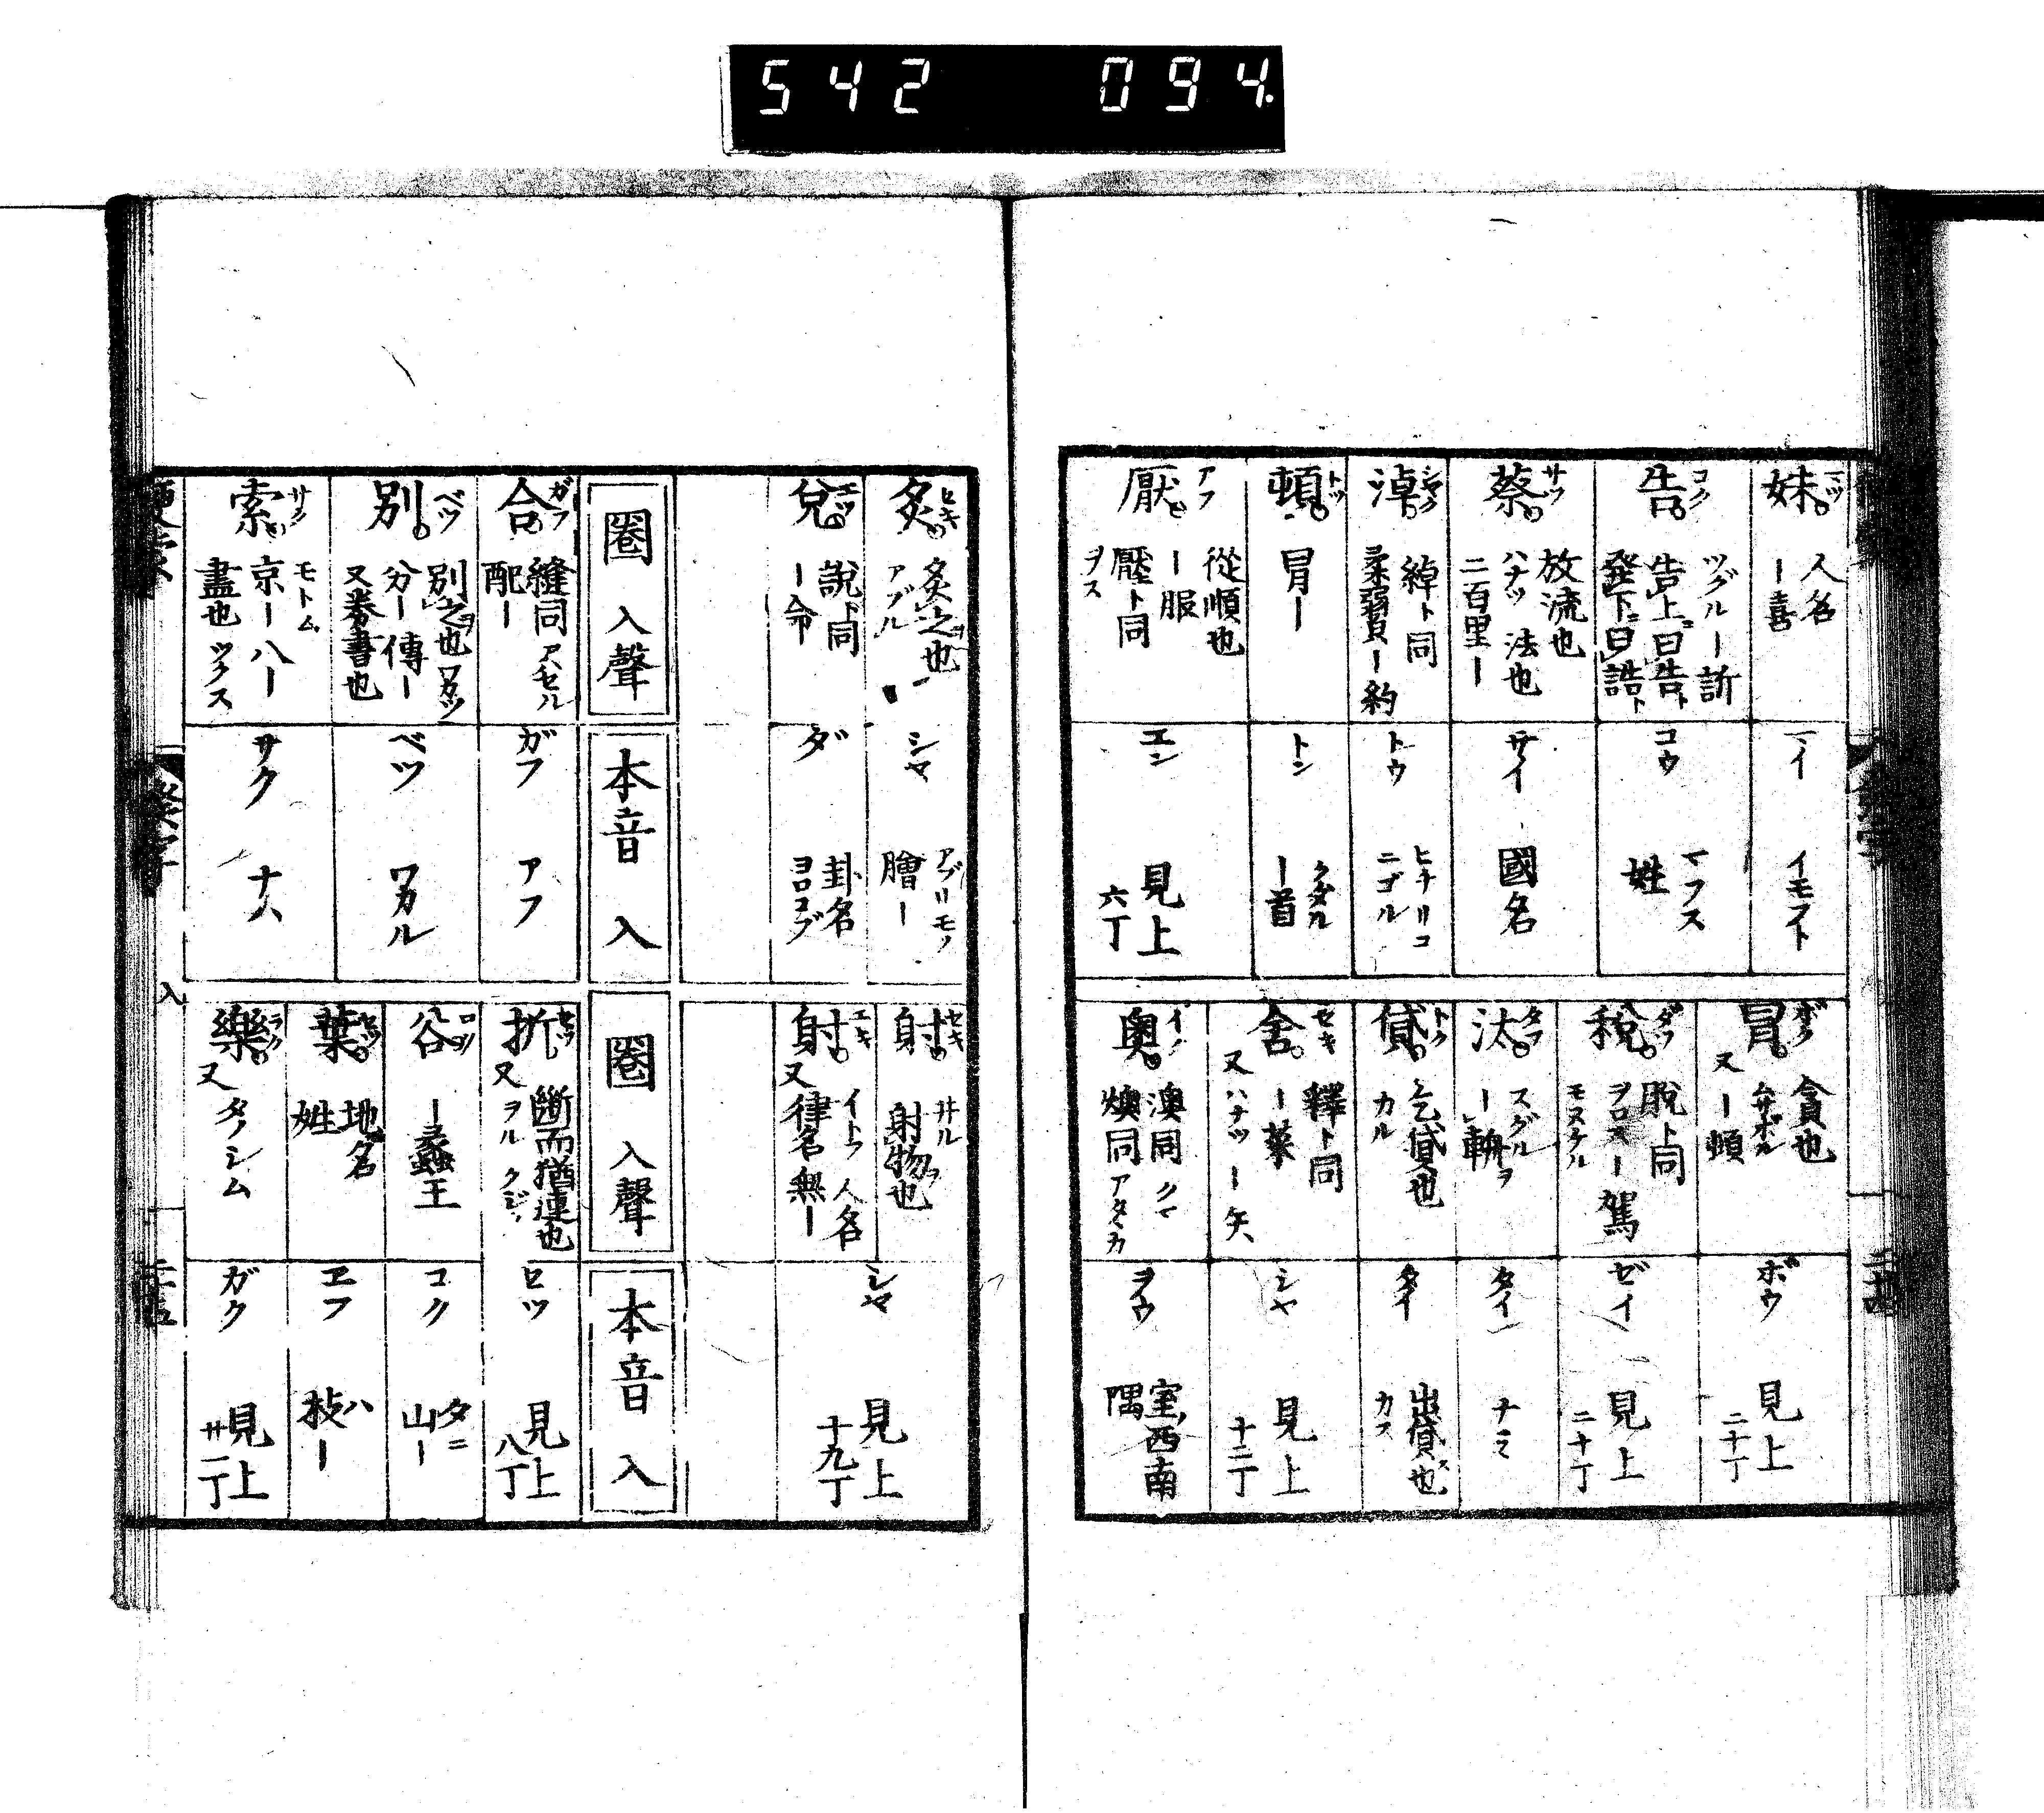 542 094.
妹 ミツ
人名
ー喜
マイ
イモフト
告 コク
ツグルー訴
告上曰告ト
発下曰誥ト
コウ
マフス
姓
蔡 サツ
放流也
ハナツ 法也
二百里ー
サイ
國名
淖 シヤク
綽ト同
柔弱ー約
トウ
ヒチリコ
ニゴル
頓 トツ
冒ー
トン
クダル
ー首
厭 アフ
從順也
ー服
壓ト同
ヲス
エン
見上
六丁
冒 ボク
貪也
ムサボル
又ー頓
ボウ
見上
二十丁
税 ダツ
脱ト同
ヲロスー駕
モヌケル
ゼイ
見上
二十丁
汰 タツ
スグル
ー輈ヲ
タイ
ナミ
貸 トク
乞貸也
カル
タイ
出貸也
カス
舍 セキ
釋ト同
ー菜
又ハナツー矢
シヤ
見上
十二丁
奧 イク
澳同 クマ
燠同 アタヽカ
ヲウ
室西南
隅
二十四
炙 セキ
炙之ヲ也
アブル
シヤ
アブリモノ
膾ー
兌 エツ
説ト同
ー命
ダ
卦名
ヨロコブ
射 セキ
ヰル
射物ヲ也
射 エキ
イトフ 人名
又律名無ー
シヤ
見上
十九丁
圈 入聲
本音 入
合 ガフ
縫同 アハセル
配ー
ガフ
アフ
別 ベツ
別之ヲ也 ワカツ
分ー傳ー
又券書也
ベツ
ワカル
索 サク
モトム
京ー八ー
盡也 ツクス
サク
ナハ
圈 入聲
本音 入
折 セツ
斷而猶連也
又ヲル クジク
セツ
見上
八丁
谷 ロク
ー蠡王
コク
タニ
山ー
葉 セフ
地名
姓
エフ
ハ
枝ー
樂 ラク
又タノシム
ガク
見上
廿一丁
入
二十五